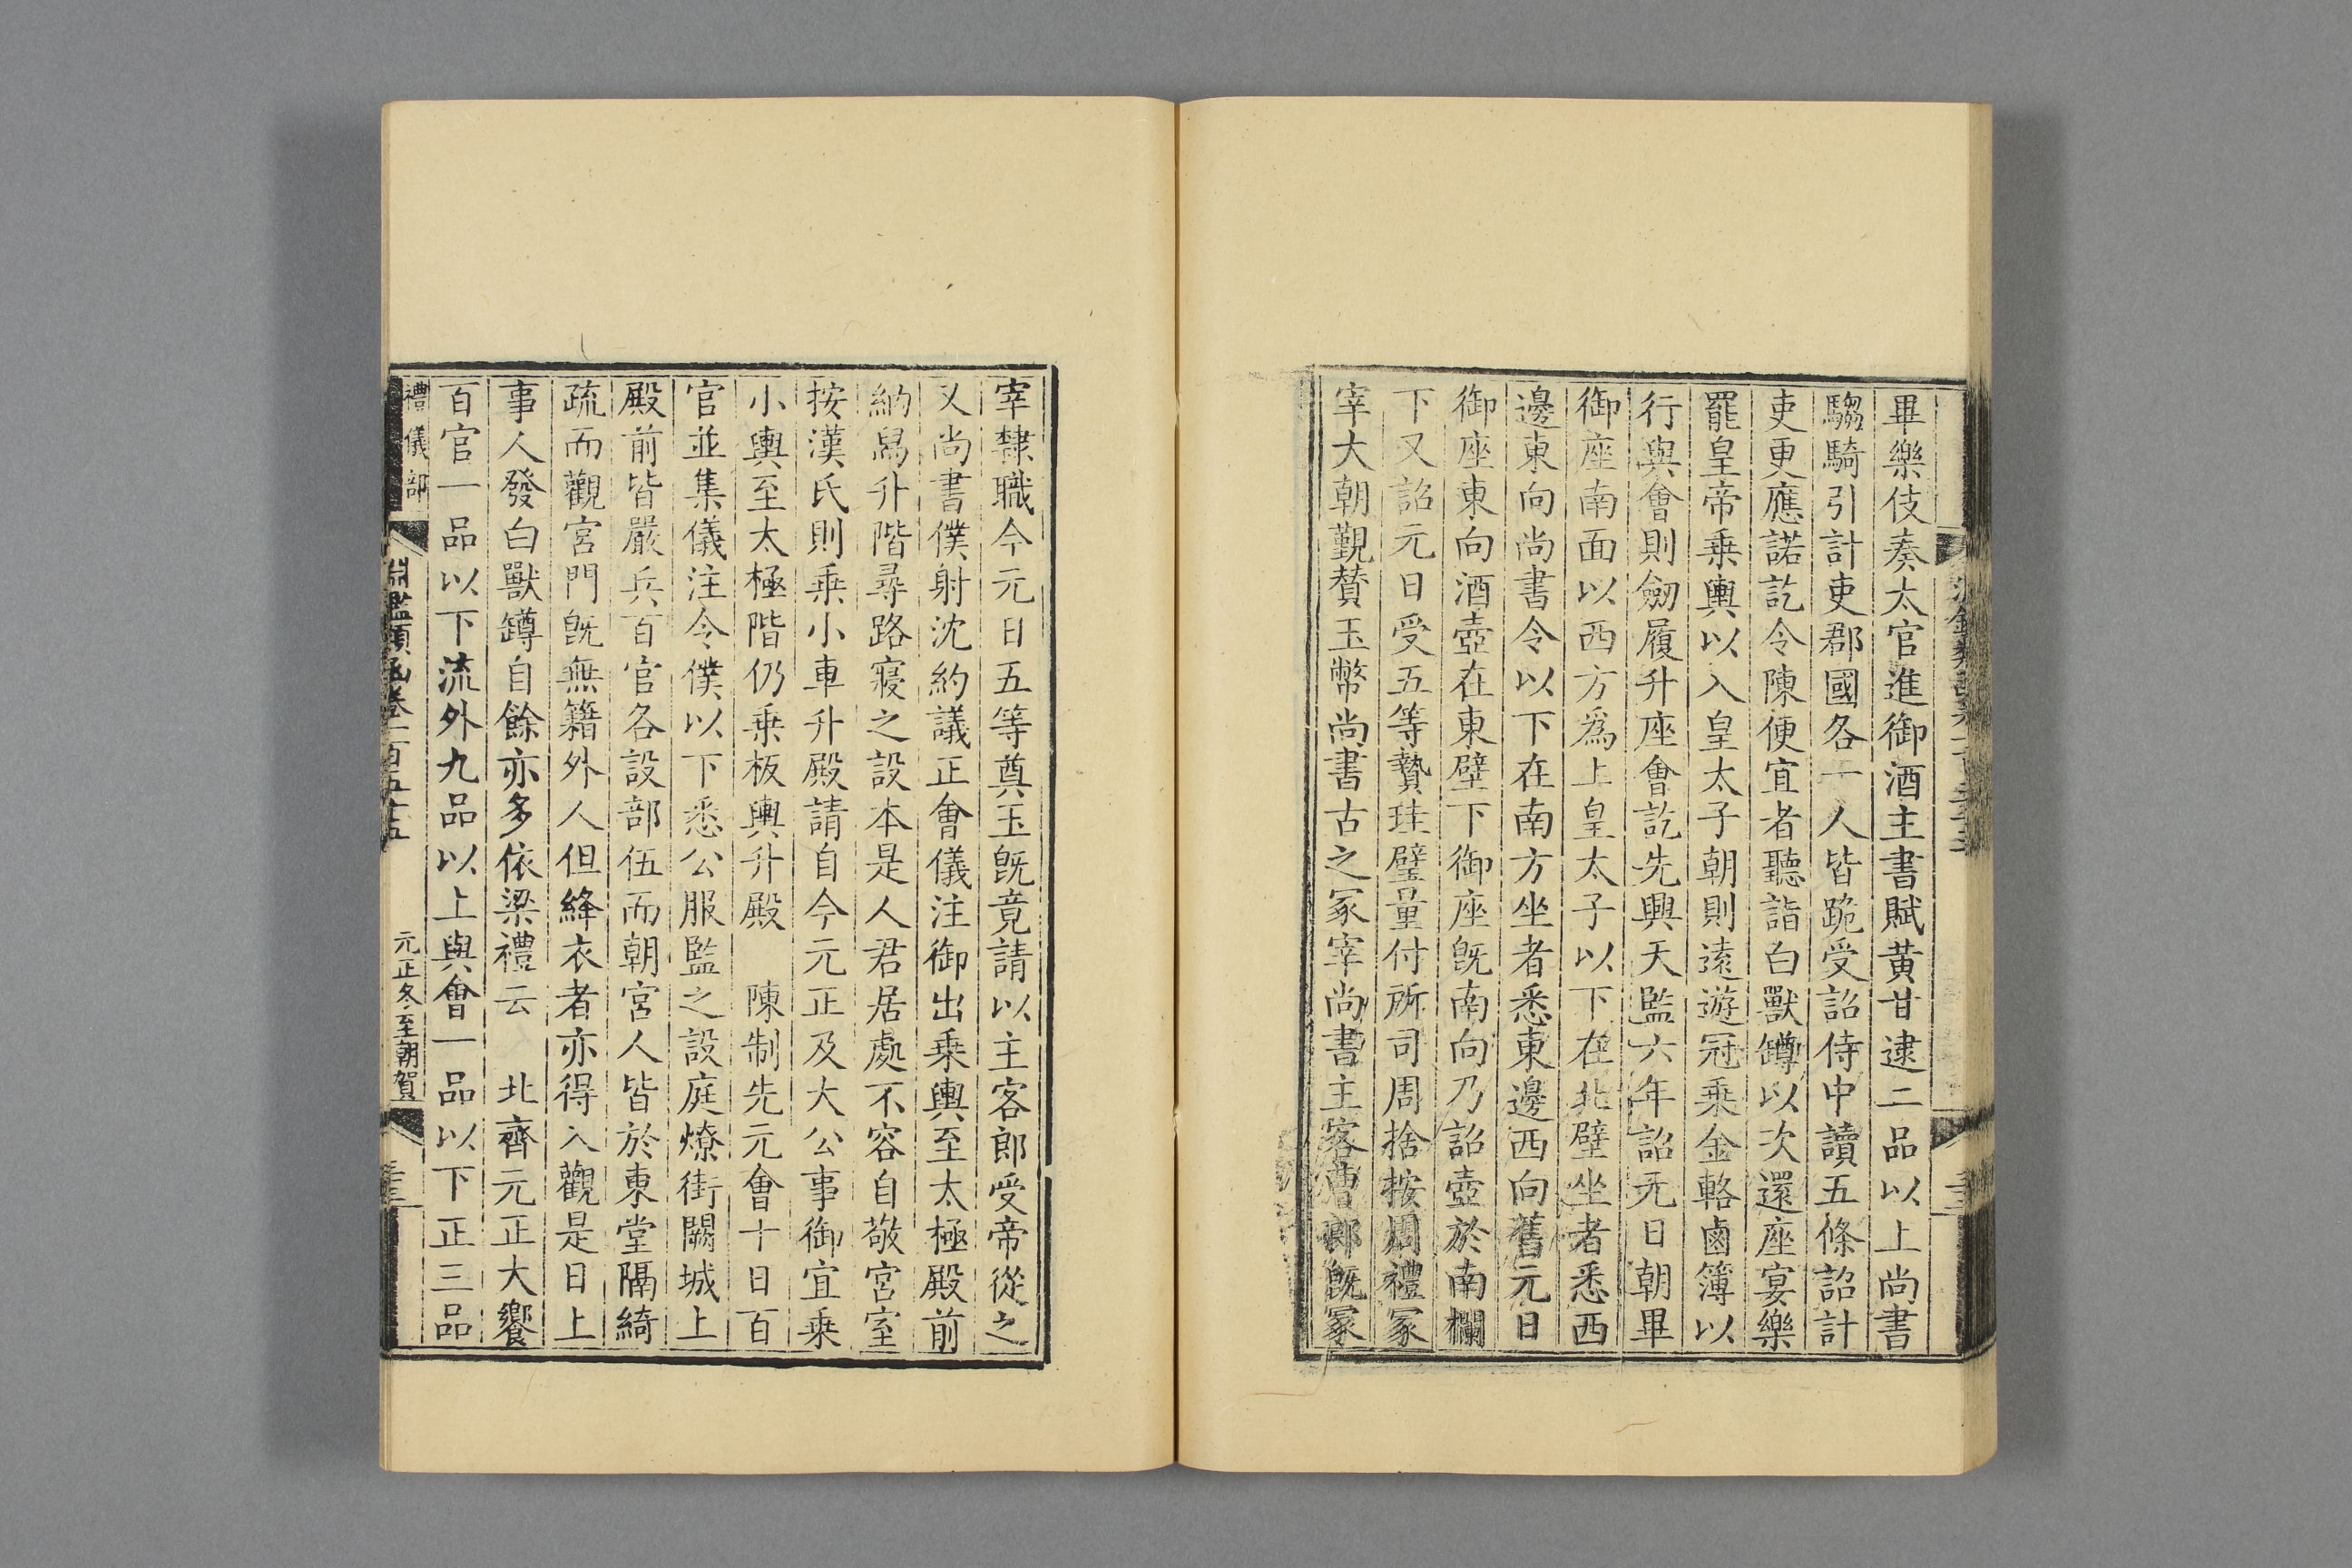 畢樂伎奏太官進御酒主書賦黃甘逮二品以上尚書
騶騎引計吏郡國各一人皆跪受詔侍中讀五條詔計
吏更應諾訖令陳便宜者聽詣白獸罇以次還座宴樂
罷皇帝乗輿以入皇太子朝則遠遊冠乗金輅鹵簿以
行與會則劒履升座會訖先興天監六年詔元日朝畢
御座南面以西方爲上皇太子以下在北壁坐者悉西
邊東向尚書令以下在南方坐者悉東邊西向舊元日
御座東向酒壺在東壁下御座旣南向乃詔壺於南欄
下又詔元日受五等贄珪璧量付所司周捨按周禮冢
宰大朝覲贊玉幣尚書古之冢宰尚書主客曹郎旣冢
宰隸職今元日五等奠玉旣竟請以主客郎受帝從之
又尚書僕射沈約議正會儀注御出乗輿至太極殿前
納舄升階尋路寢之設本是人君居處不容自敬宮室
按漢氏則乗小車升殿請自今元正及大公事御宜乗
小輿至太極階仍乗板輿升殿　陳制先元會十日百
官並集儀注令僕以下悉公服監之設庭燎街闕城上
殿前皆嚴兵百官各設部伍而朝宮人皆於東堂隔綺
疏而觀宮門旣無籍外人但絳衣者亦得入觀是日上
事人發白獸罇自餘亦多依梁禮云　北齊元正大饗
百官一品以下流外九品以上與會一品以下正三品
禮儀部
淵鑑類函卷一百五十五
元正冬至朝賀